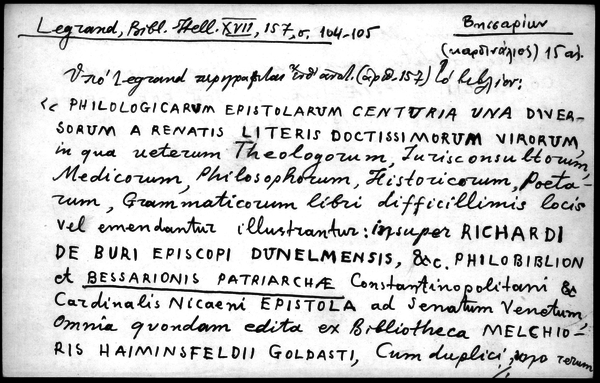 Legrand, Bibl. Hell. XVII, 157, σ. 104-105
Βησσαρίων
(καρδινάλιος) 15 αι.
Ὑπὸ Legrand περιγράφεται (ἀρθ. 157) τὸ βιβλίον:
« PHILOLOGICARUM EPISTOLARUM CENTURIA UNA DIVER-
SORUM A RENATIS LITERIS DOCTISSIMORUM VIRORUM,
in qua veterum Theologorum, Jurisconsultorum,
Medicorum, Philosophorum, Historicorum, Poeta-
rum, Grammaticorum libri difficillimis locis
vel emendantur illustrantur: insuper RICHARDI
DE BURI EPISCOPI DUNELMENSIS, &c. PHILOBIBLION
et BESSARIONIS PATRIARCHÆ Constantinopolitani &
Cardinalis Nicaeni EPISTOLA ad Senatum Venetum
Omnia quondam edita ex Bibliotheca MELCHIO-
RIS HAIMINSFELDII GOLDASTI, Cum duplici, rerum